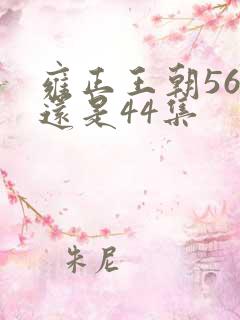 雍正王朝56
還是44集
朱尼